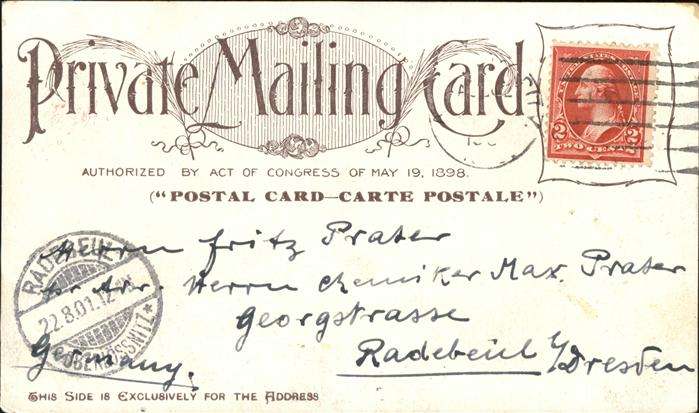 Private Mailing Card
2 2
TWO CENTS
AUTHORIZED BY ACT OF CONGRESS OF MAY 19, 1898.
("POSTAL CARD–CARTE POSTALE")
Herrn Fritz Prater
pr. Adr. Herrn Chemiker Max Prater
Georgstrasse
Radebeul b/Dresden
Germany.
RADEBEUL
22.8.01.12
OBERLÖSSNITZ
THIS SIDE IS EXCLUSIVELY FOR THE ADDRESS